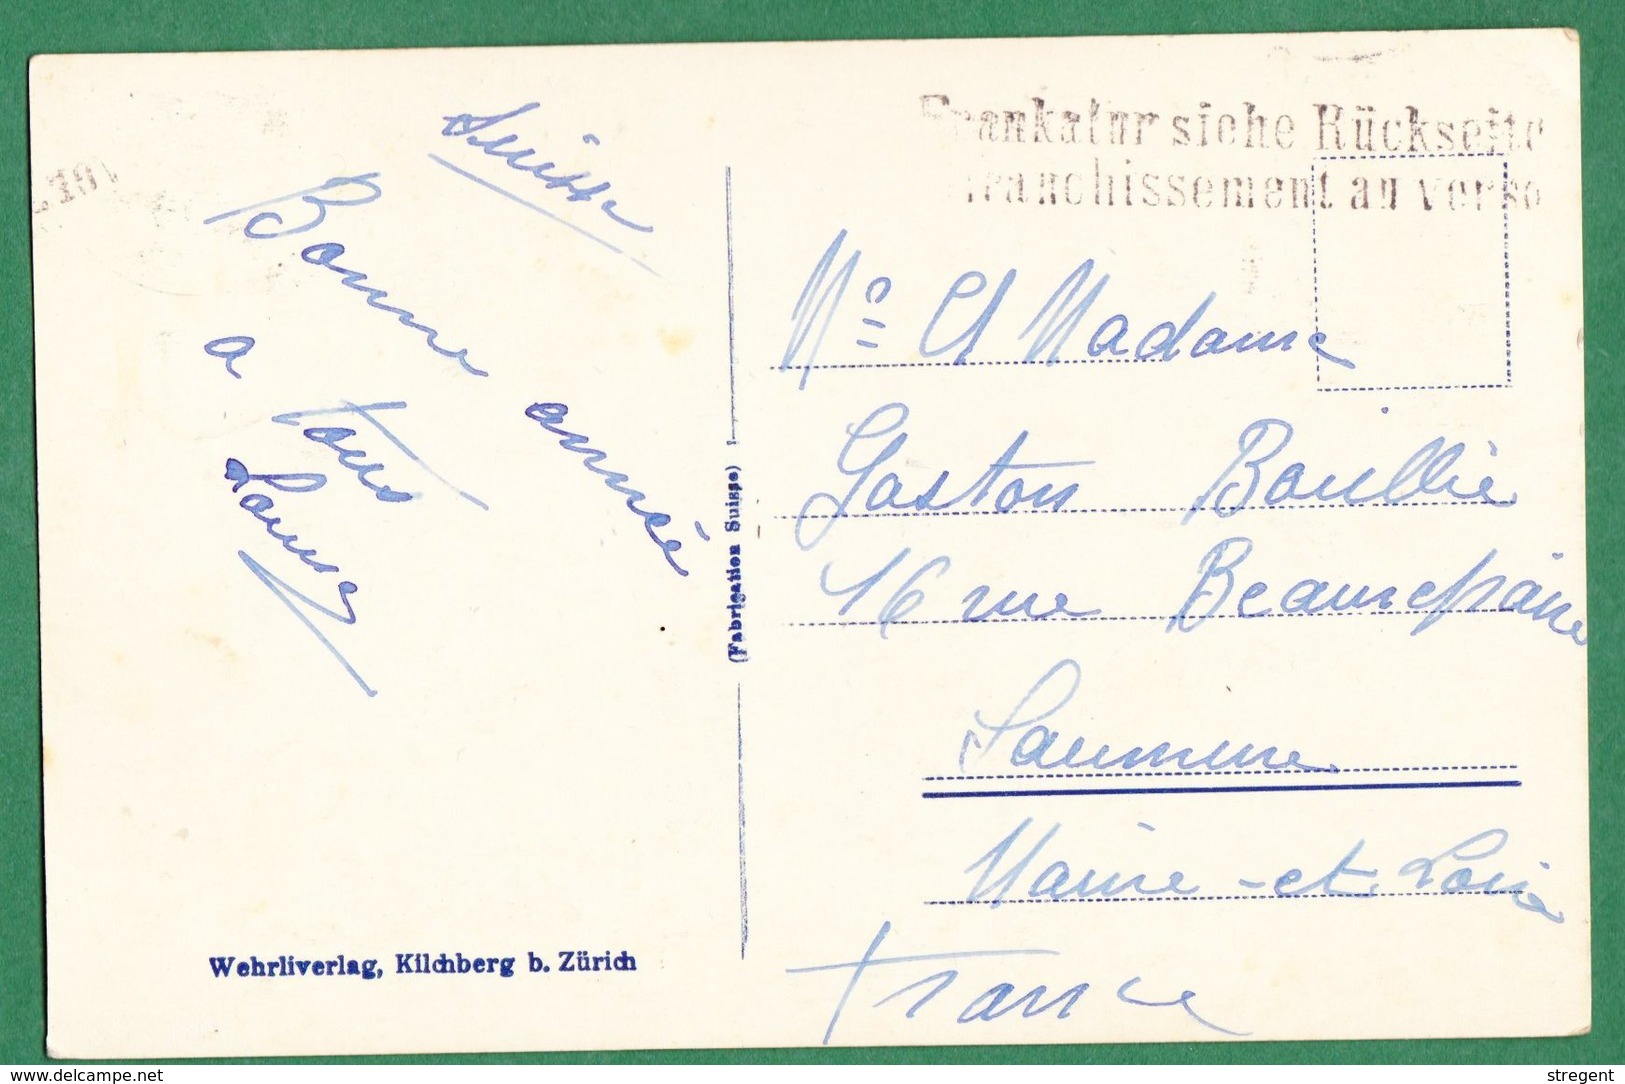 Suisse
Bonne année
a tous
Louise
Frankatur siehe Rückseite
Franchissement au verso
Mr et Madame
Gaston Bouillié
16 rue Beaurepaire
Saumur
Maine-et-Loire
France
(Fabrication Suisse)
Wehrliverlag, Kilchberg b. Zürich
www.delcampe.net
stregent